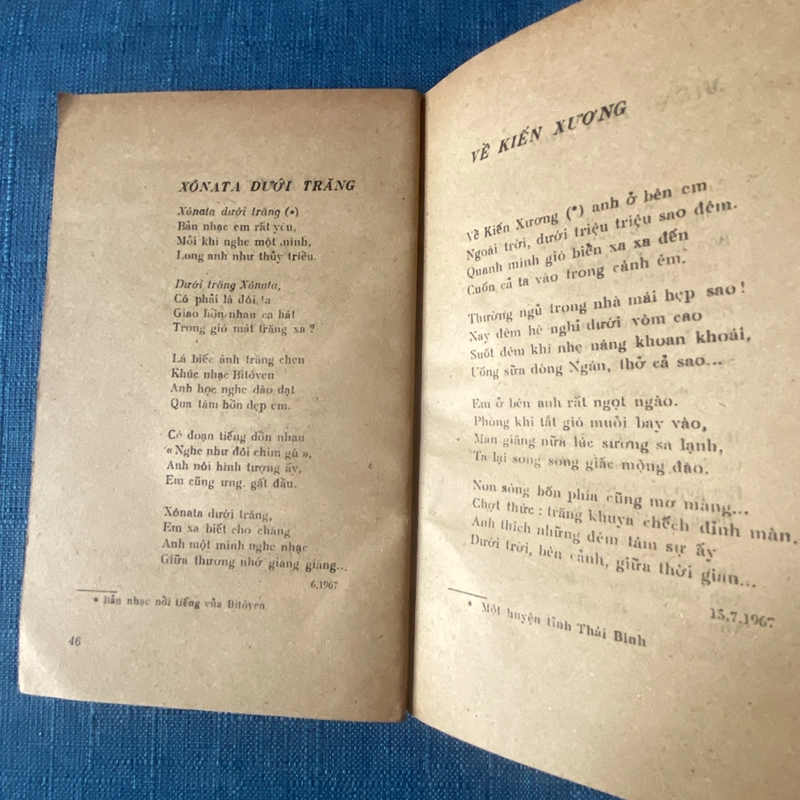 XÔNATA DƯỚI TRĂNG
Xônata dưới trăng (*)
Bản nhạc em rất yêu,
Mỗi khi nghe một mình,
Long anh như thủy triều.
Dưới trăng Xônata,
Có phải là đôi ta
Giao hồn nhau ca hát
Trong gió mát trăng xa ?
Lá biếc ánh trăng chen
Khúc nhạc Bitôven
Anh học nghe dào dạt
Qua tâm hồn đẹp em.
Có đoạn tiếng dồn nhau
« Nghe như đôi chim gù »,
Anh nói hình tượng ấy,
Em cũng ưng. gất đầu.
Xônata dưới trăng,
Em xa biết cho chăng
Anh một mình nghe nhạc
Giữa thương nhớ giăng giăng...
6.1967
* Bản nhạc nổi tiếng của Bitôven.
46
VỀ KIẾN XƯƠNG
Về Kiến Xương (*) anh ở bên em
Ngoài trời, dưới triệu triệu sao đêm.
Quanh mình gió biển xa xa đến
Cuốn cả ta vào trong cảnh êm.
Thường ngủ trong nhà mái hẹp sao !
Nay đêm hè nghỉ dưới vòm cao
Suốt đêm khí nhẹ nâng khoan khoái,
Uống sữa dòng Ngân, thở cả sao...
Em ở bên anh rất ngọt ngào.
Phòng khi tắt gió muỗi bay vào,
Màn giăng nửa lúc sương sa lạnh,
Ta lại song song giấc mộng đào.
Non sông bốn phía cũng mơ màng...
Chợt thức : trăng khuya chếch đỉnh màn.
Anh thích những đêm tâm sự ấy
Dưới trời, bên cảnh, giữa thời gian...
15.7.1967
* Một huyện tỉnh Thái Bình